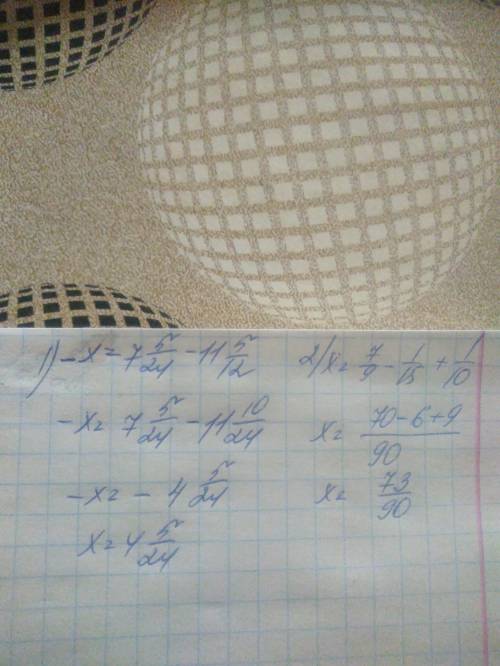 1) -x = 7 5/24 - 11 5/12
-x = 7 5/24 - 11 10/24
-x = - 4 5/24
x = 4 5/24
2) x = 7/9 - 1/15 + 1/10
x = (70-6+9)/90
x = 73/90